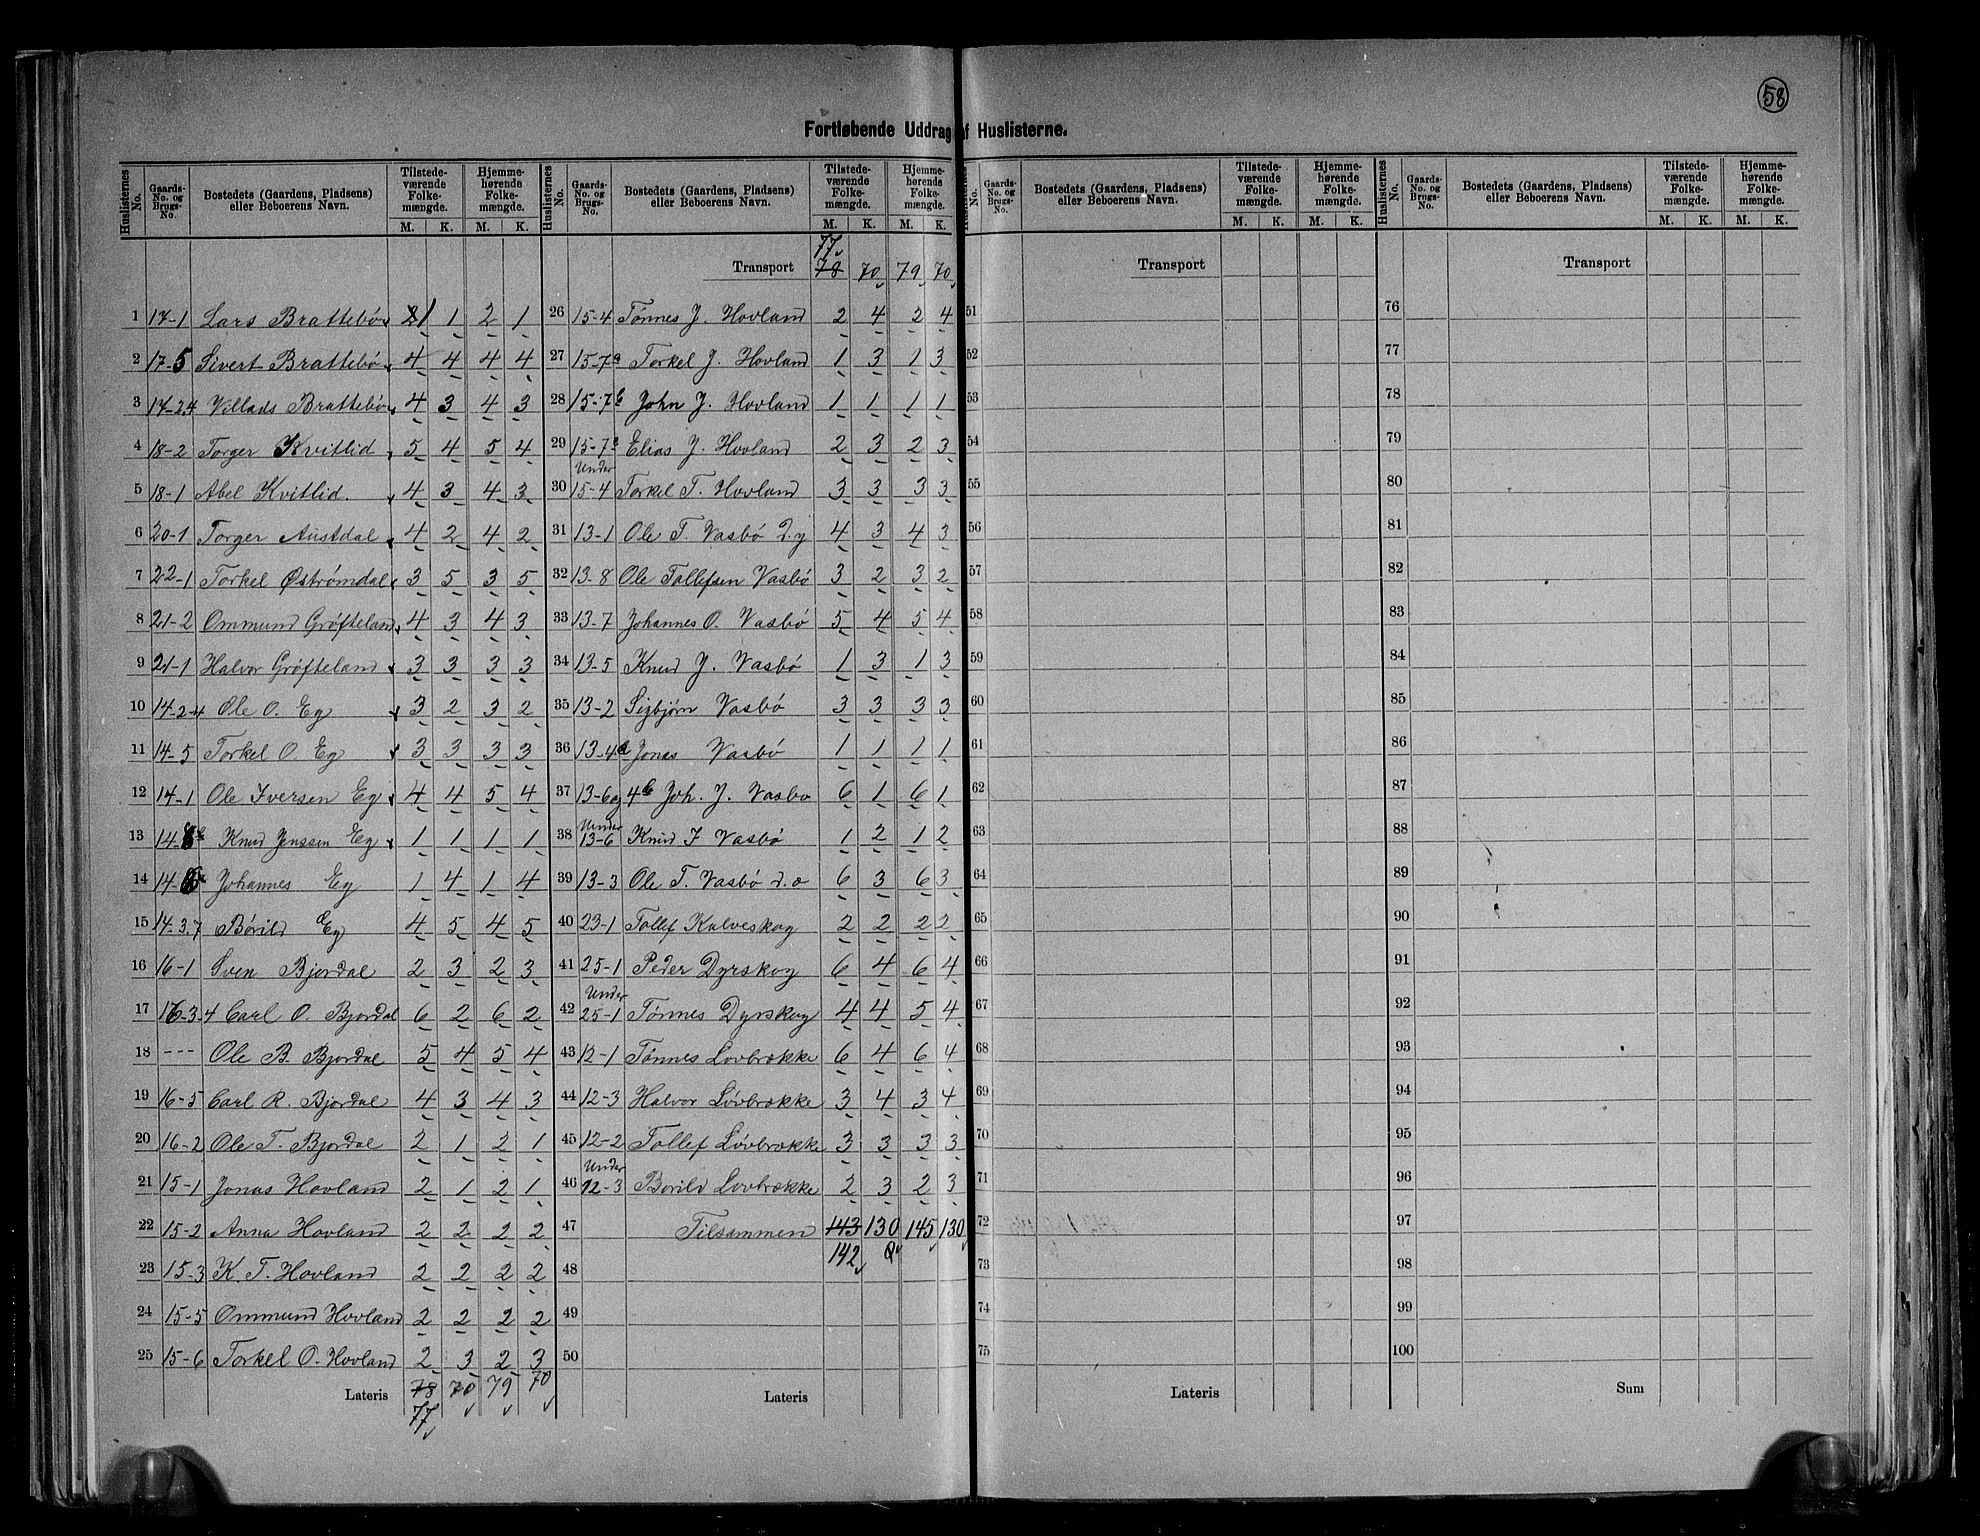 58
Fortløbende Uddrag af Huslisterne.
Huslisternes No. Gaards-No. og Brugs-No. Bostedets (Gaardens, Pladsen) eller Beboerens Navn. Tilstedeværende Folkemængde. M. K. Hjemmehørende Folkemængde. M. K.
1 17-1 Lars Brattebø 1 1 2 1
2 17-5 Sivert Brattebø 4 4 4 4
3 17-2,4 Villads Brattebø 4 3 4 3
4 18-2 Torger Kvitlid 5 4 5 4
5 18-1 Abel Kvitlid. 4 3 4 3
6 20-1 Torger Austdal 4 2 4 2
7 22-1 Torkel Østrømdal 3 5 3 5
8 21-2 Ommund Grøfteland 4 3 4 3
9 21-1 Halvor Grøfteland 3 3 3 3
10 14-2-4 Ole O. Eg 3 2 3 2
11 14-5 Torkel O. Eg 3 3 3 3
12 14-1 Ole Iversen Eg 4 4 5 4
13 Knud Jenssen Eg 1 1 1 1
14 Johannes Eg 1 4 1 4
15 14-3,7 Børild Eg 4 5 4 5
16 16-1 Sven Bjordal 2 3 2 3
17 16-3-4 Carl O. Bjordal 6 2 6 2
18 --- Ole B. Bjordal 5 4 5 4
19 16-5 Carl R. Bjordal 4 3 4 3
20 16-2 Ole T. Bjordal 2 1 2 1
21 15-1 Jonas Hovland 2 1 2 1
22 15-2 Anna Hovland 2 2 2 2
23 15-3 K. T. Hovland 2 2 2 2
24 15-5 Ommund Hovland 2 2 2 2
25 15-6 Torkel O. Hovland 2 3 2 3
Lateris 78 70 79 70
77
Huslisternes No. Gaards-No. og Brugs-No. Bostedets (Gaardens, Pladsens) eller Beboerens Navn. Tilstedeværende Folkemængde. M. K. Hjemmehørende Folkemængde. M. K.
77
Transport 78 70 79 70
26 15-4 Tønnes J. Hovland 2 4 2 4
27 15-7a Torkel J. Hovland 1 3 1 3
28 15-7b John J. Hovland 1 1 1 1
29 15-7c Elias J. Hovland 2 3 2 3
Under
30 15-4 Torkel T. Hovland 3 3 3 3
31 13-1 Ole T. Vasbø d.y 4 3 4 3
32 13-8 Ole Tollefsen Vasbø 3 2 3 2
33 13-7 Johannes O. Vasbø 5 4 5 4
34 13-5 Knud J. Vasbø 1 3 1 3
35 13-2 Sigbjørn Vasbø 3 3 3 3
36 13-4a Jonas Vasbø 1 1 1 1
37 13-6 og 4b Joh. J. Vasbo 6 1 6 1
Under
38 13-6 Knud J Vasbø 1 2 1 2
39 13-3 Ole T. Vasbø d.æ 6 3 6 3
40 23-1 Tollef Kalveskog 2 2 2 2
41 25-1 Peder Dyrskog 6 4 6 4
Under
42 25-1 Tønnes Dyrskog 4 4 5 4
43 12-1 Tønnes Lovbrække 6 4 6 4
44 12-3 Halvor Løvbrække 3 4 3 4
45 12-2 Tollef Løvbrække 3 3 3 3
Under
46 12-3 Borild Lovbrække 2 3 2 3
47 Tilsammen 143 130 145 130
48 142
49
50
Lateris
Huslisternes No. Gaards-No. og Brugs-No. Bostedets (Gaardens, Pladsens) eller Beboerens Navn. Tilstedeværende Folkemængde. M. K. Hjemmehørende Folkemængde. M. K.
Transport
51
52
53
54
55
56
57
58
59
60
61
62
63
64
65
66
67
68
69
70
71
72
73
74
75
Lateris
Huslisternes No. Gaards-No. og Brugs-No. Bostedets (Gaardens, Pladsens) eller Beboerens Navn. Tilstedeværende Folkemængde. M. K. Hjemmehørende Folkemængde. M. K.
Transport
76
77
78
79
80
81
82
83
84
85
86
87
88
89
90
91
92
93
94
95
96
97
98
99
100
Sum